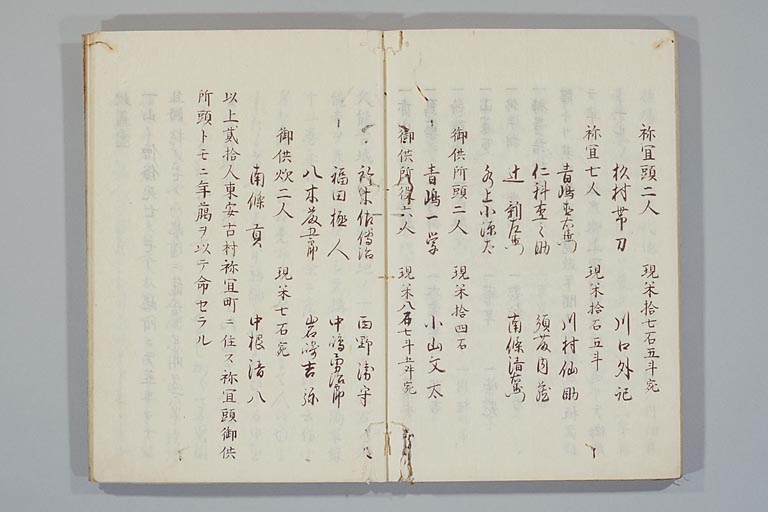 祢冝頭二人 現米拾七石五斗宛
杉村帯刀 川口外記
祢冝七人 現米拾石五斗
青嶋 川村仙助
仁科 之助 須藤内蔵
辻 南條清
水上小源太
御供所頭二人 現米拾四石
青嶋一学 小山文太
御供所役六人 現米八石七斗五升宛
鈴木佐傳治 西野清守
福田極人 中嶋勇治郎
八木藤五郎 岩崎吉弥
御供炊二人 現米七石宛
南條貢 中根清八
以上貳拾人東安古村祢冝町ニ住ス祢冝頭御供
所頭トモニ年﨟ヲ以テ命セラル